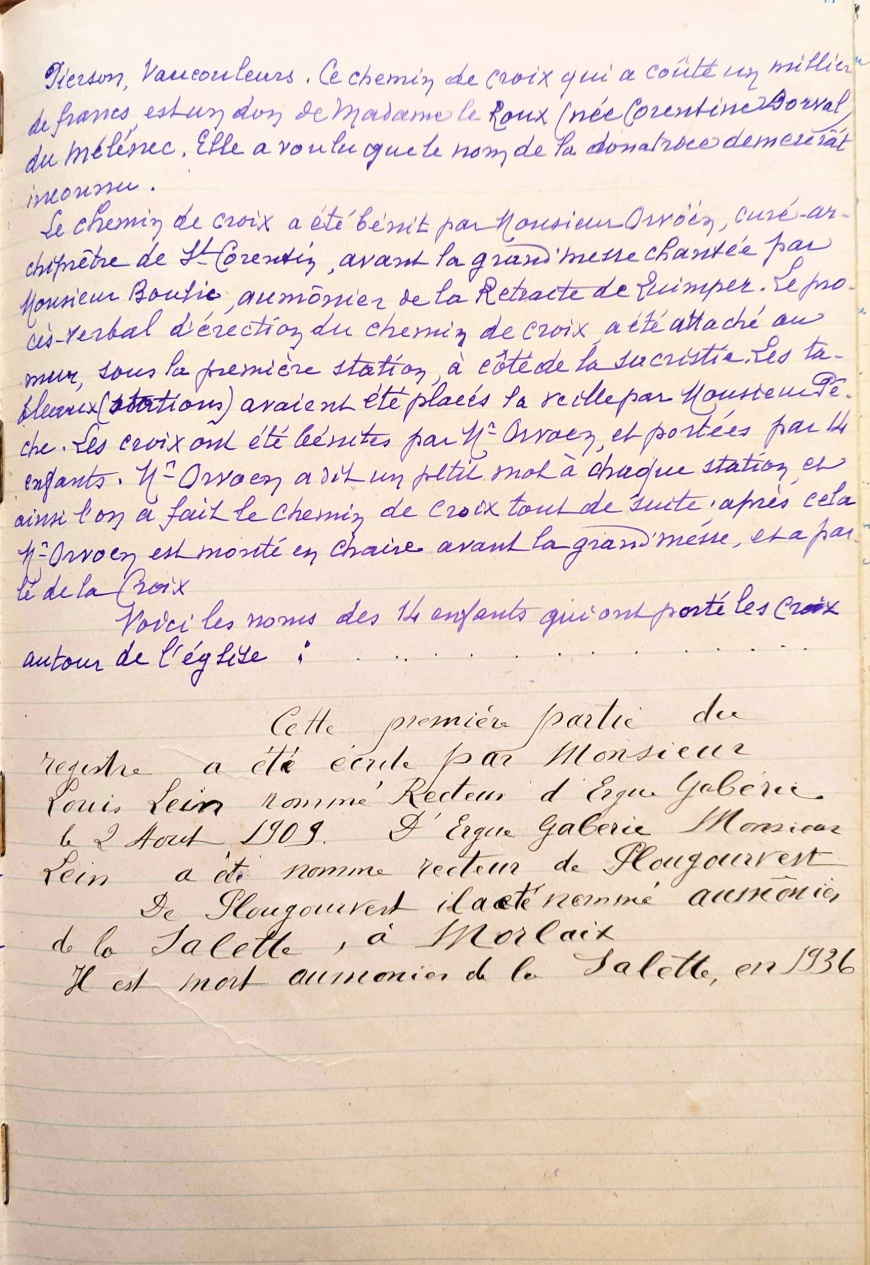 Pierson, Vaucouleurs. Ce chemin de croix qui a coûté un millier
de francs, est un don de Madame le Roux (née Corentine Dorval)
du Mélénec. Elle a voulu que le nom de la donatrice demeurât
inconnu.
Le chemin de croix a été bénit par Monsieur Orvöen, curé-ar-
chiprêtre de St Corentin, avant la grand'messe chantée par
Monsieur Boulic, aumônier de la Retraite de Quimper. Le pro-
cès-verbal d'érection du chemin de croix, a été attaché au
mur, sous la première station, à côté de la sacristie. Les ta-
bleaux (stations) avaient été placés la veille par Monsieur Pê-
che. Les croix ont été bénites par Mr Orvoen, et portées par 14
enfants. Mr Orvoen a dit un petit mot à chaque station, et
ainsi l'on a fait le chemin de croix tout de suite. après cela
Mr Orvoen est monté en chaire avant la grand'messe, et a par-
lé de la Croix
Voici les noms des 14 enfants qui ont porté les croix
autour de l'église : . . . . . . . . . . . . . .
Cette première partie du
registre a été écrite par Monsieur
Louis Lein nommé Recteur d'Ergue Gabéric
le 2 Aout 1909. D'Ergue Gaberic Monsieur
Lein a été nommé recteur de Plougourvest
De Plougourvest il a été nommé aumônier
de la Salette, à Morlaix
Il est mort aumonier de la Salette, en 1936